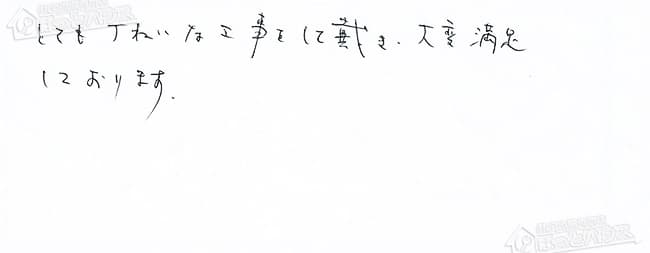 とても丁ねいな工事をして戴き、大変満足
しております。
ほっとハウス